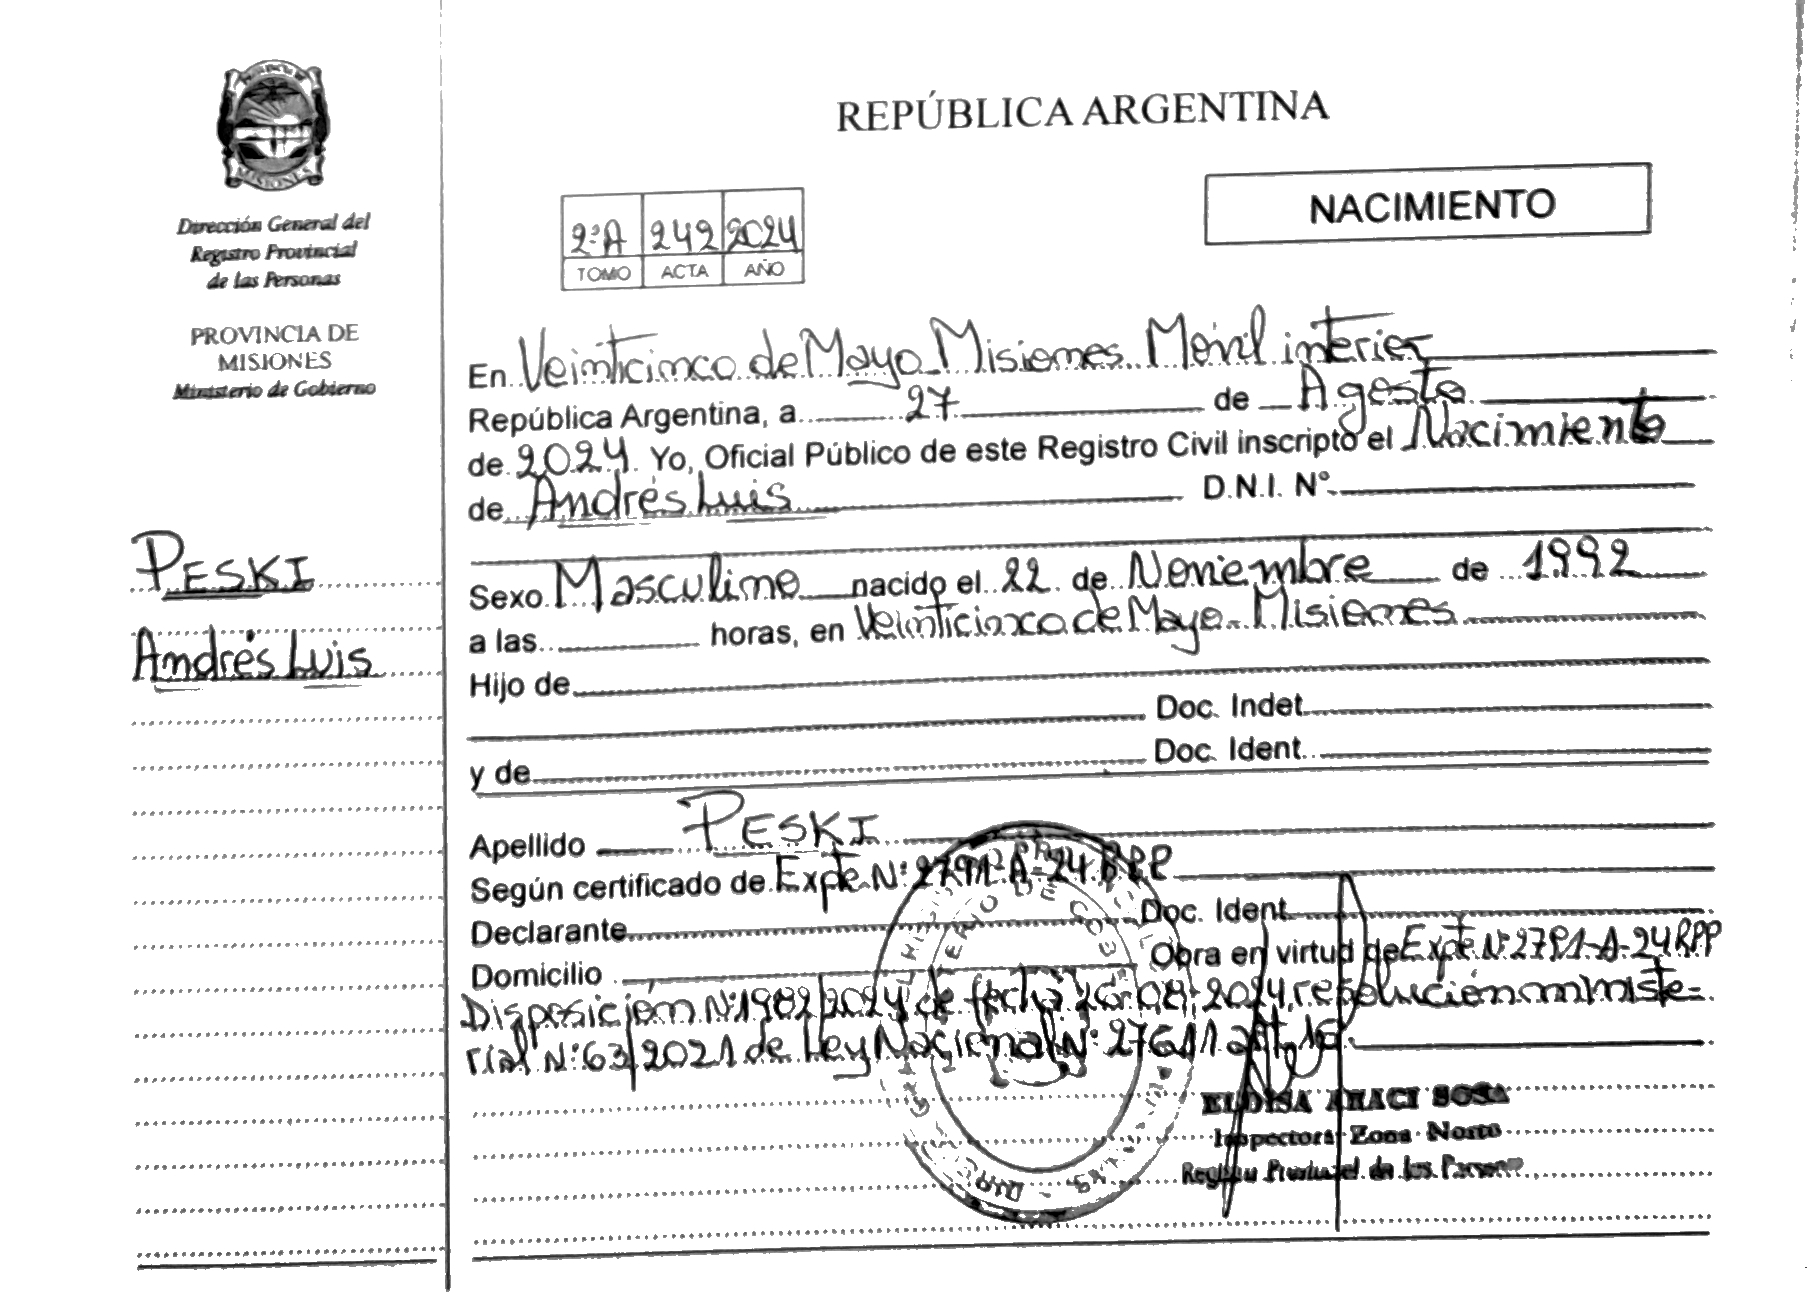 MISIONES
Dirección General del
Registro Provincial
de las Personas
PROVINCIA DE
MISIONES
Ministerio de Gobierno
PESKI
Andrés Luis
REPÚBLICA ARGENTINA
NACIMIENTO
2ºA 242 2024
TOMO ACTA AÑO
En Veinticinco de Mayo Misiones Móvil interior
República Argentina, a 27 de Agosto
de 2024 Yo, Oficial Público de este Registro Civil inscripto el Nacimiento
de Andrés Luis D.N.I. Nº
Sexo Masculino nacido el 22 de Noviembre de 1992
a las horas, en Veinticinco de Mayo - Misiones
Hijo de
Doc. Indet
y de Doc. Ident.
Apellido PESKI
Según certificado de Expte Nº 2791-A-24 RPP
Declarante Doc. Ident.
Domicilio Obra en virtud de Expte Nº 2791-A-24 RPP
Disposición Nº 1982/2024 de fecha 26-08-2024, resolución ministe-
rial Nº 63/2021 de Ley Nacional Nº 27611 art 16.
ELOISA ARACI SOSA
Inspectora Zona Norte
Registro Provincial de las Personas